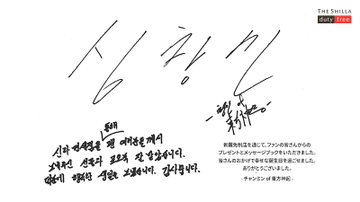 THE SHILLA
duty free
심창민
동방신기를 통해
신라면세점을 팬 여러분들께서
보내주신 선물과 포토북 잘 받았습니다.
덕분에 행복한 생일을 보냈습니다. 감사합니다.
新羅免税店を通じて、ファンの皆さんからの
プレゼントとメッセージブックをいただきました。
皆さんのおかげで幸せな誕生日を過ごせました。
ありがとうございました。
- チャンミン of 東方神起 -